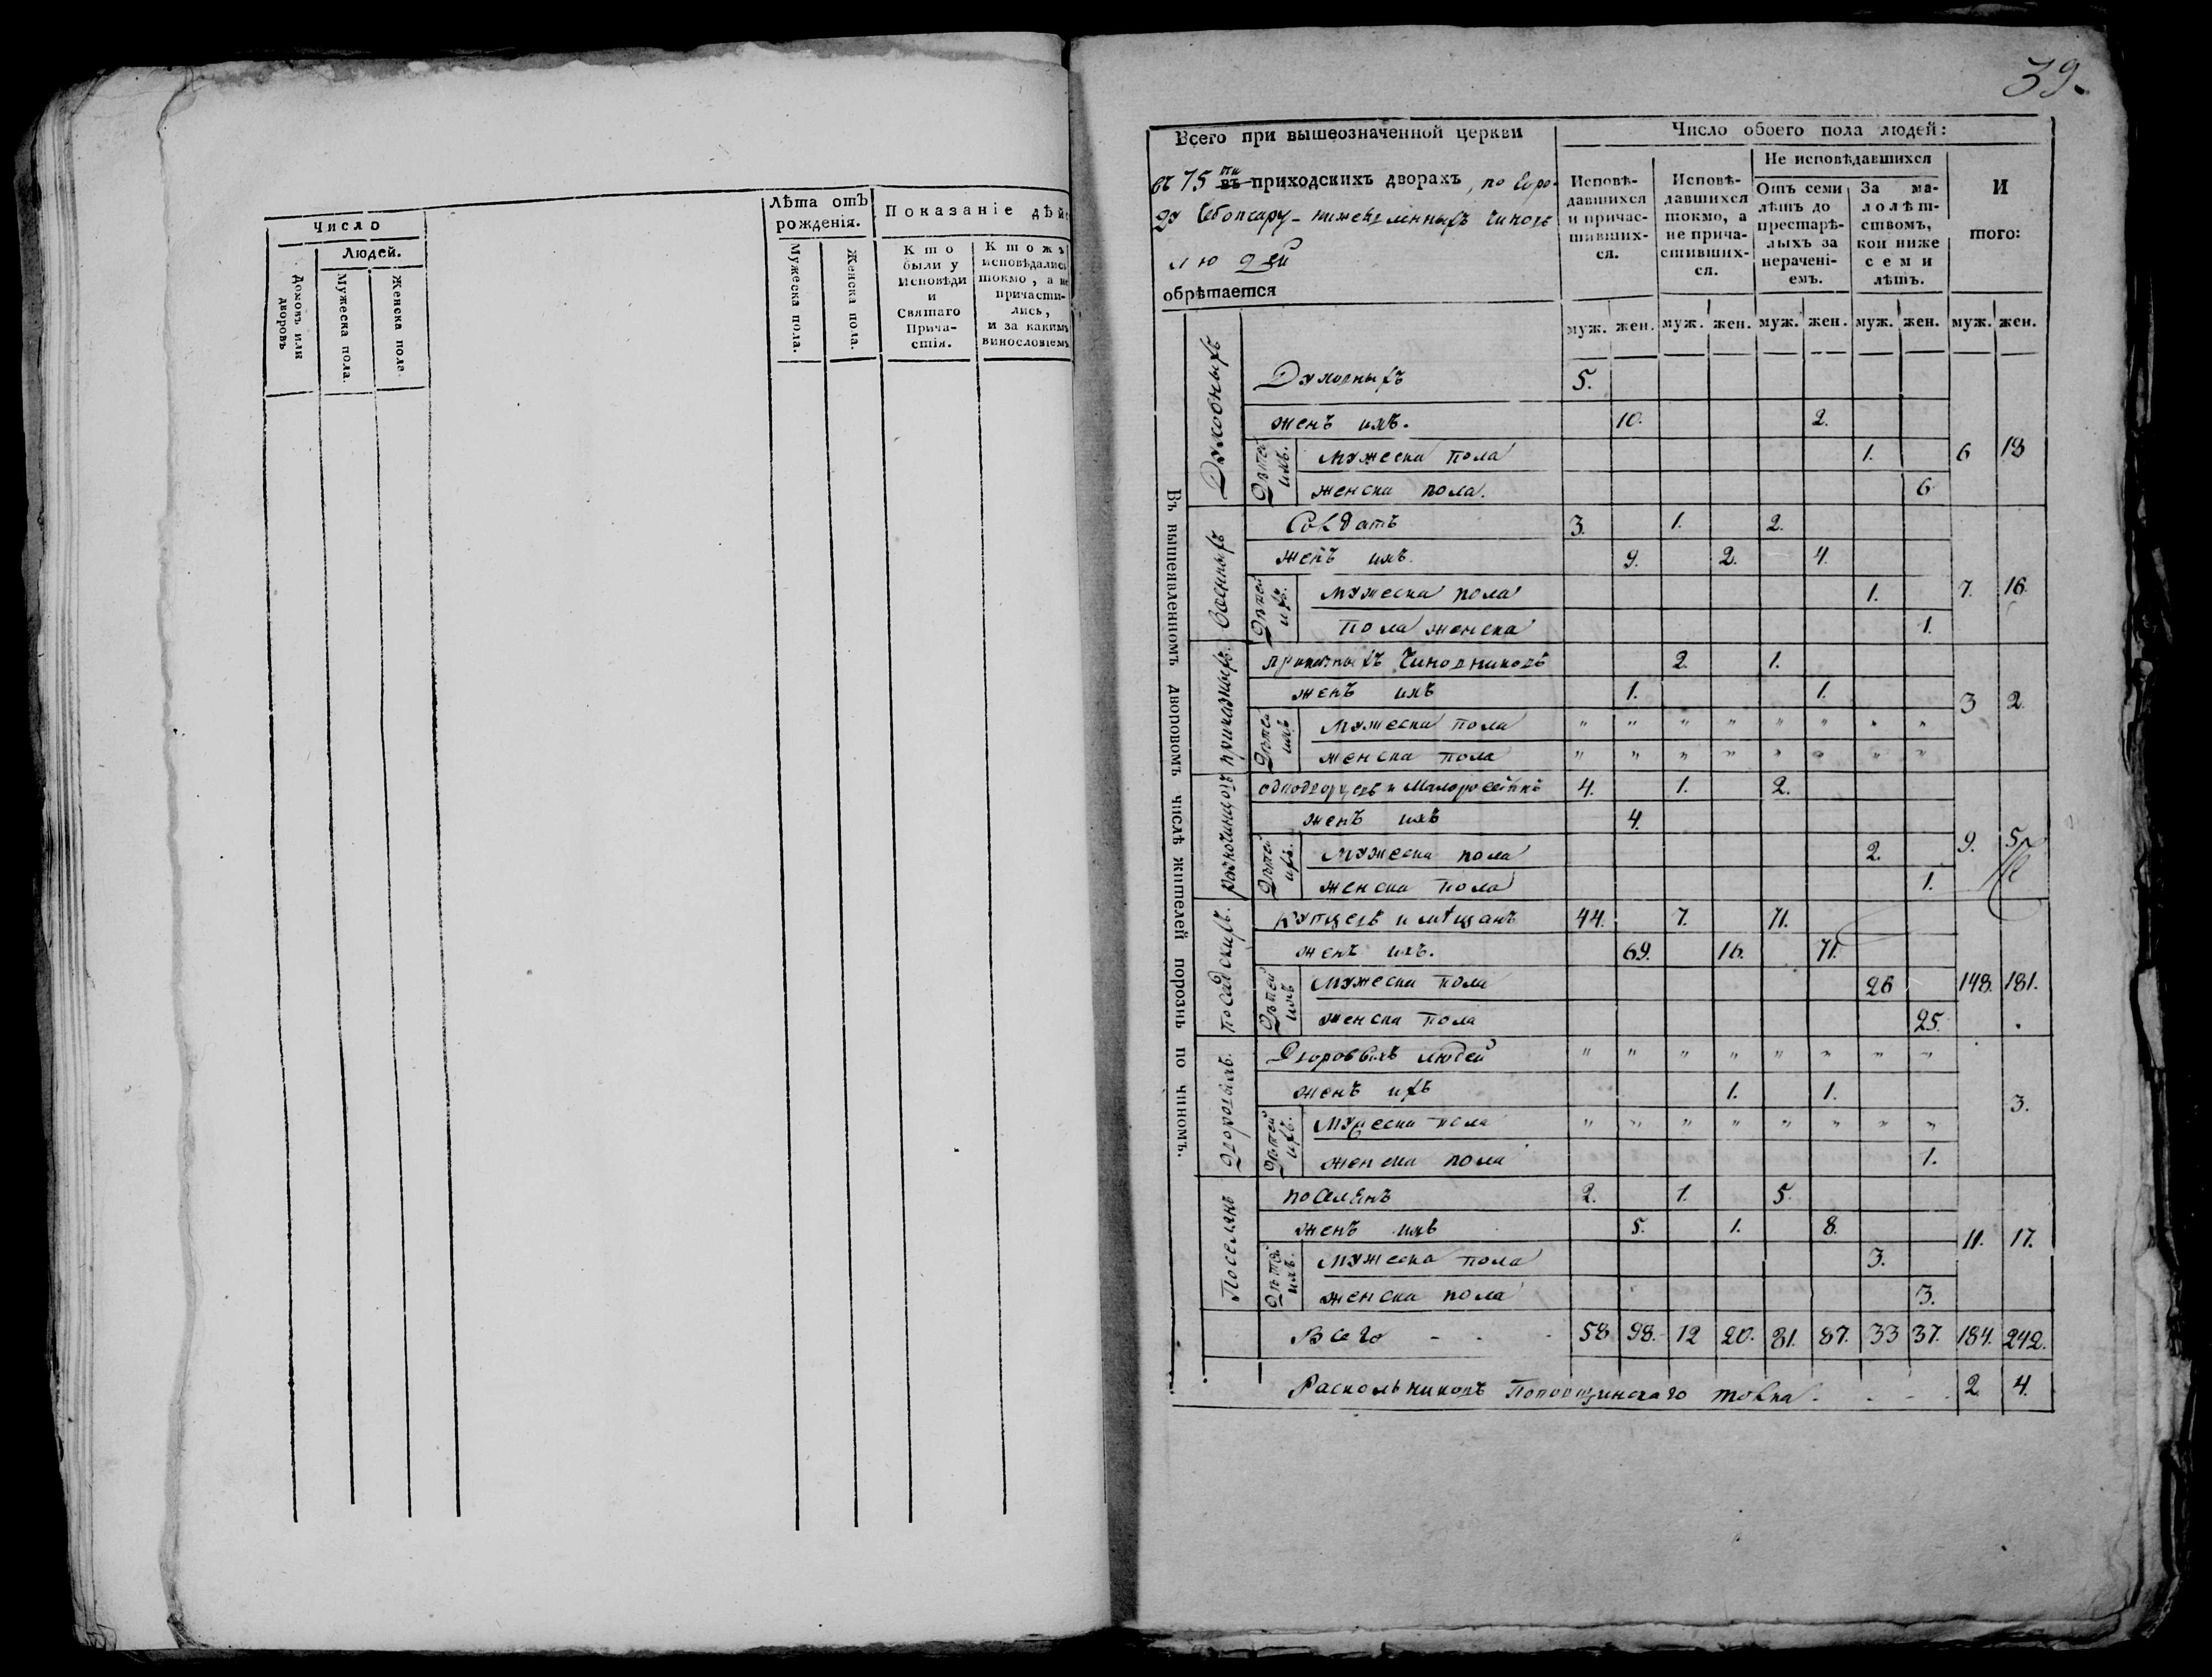 Число
Людей.
Домовъ или дворовъ
Мужеска пола.
Женска пола.
Лѣта отъ рожденія.
Мужеска пола.
Женска пола.
Показаніе дѣй
Кто были у Исповѣди и Святаго Прича- стія.
Ктожъ исповѣдались токмо, а не причасти- лись, и за какимъ винословіемъ
39.
Всего при вышеозначенной церкви
въ 75 ти въ приходскихъ дворахъ, по горо-
ду Чебоксару
людей
обрѣтается
Число обоего пола людей:
Исповѣ- давшихся и причас- тивших- ся.
Исповѣ- давшихся токмо, а не прича- стивших- ся.
Не исповѣдавшихся
Отъ семи лѣтъ до престарѣ- лыхъ за нерачені- емъ.
За ма- лолѣт- ствомъ, кои ниже семи лѣтъ.
И того:
муж. жен. муж. жен. муж. жен. муж. жен. муж. жен.
Въ вышеявленномъ дворовомъ числѣ жителей порознь по чиномъ.
Духовныхъ
Духовныхъ 5.
женъ ихъ. 10. 2.
Дѣтей ихъ.
мужеска пола 1. 6 18
женска пола. 6
Военныхъ
Солдатъ 3. 1. 2.
женъ ихъ. 9. 2. 4.
Дѣтей ихъ.
мужеска пола 1. 7. 16
пола женска 1.
приказныхъ.
приказныхъ Чиновниковъ 2. 1.
женъ ихъ 1. 1. 3 2
Дѣтей ихъ
мужеска пола " " " " " " " "
женска пола " " " " " " " "
разночинцовъ
однодворцевъ и Малороссіянъ 4. 1. 2.
женъ ихъ 4.
Дѣтей ихъ.
мужеска пола 2. 9. 5
женска пола 1.
посадскихъ.
купцевъ и мѣщанъ 44. 7. 71.
женъ ихъ. 69. 16. 71.
Дѣтей ихъ
мужеска пола 26 148. 181.
женска пола 25.
Дворовыхъ.
Дворовыхъ людей " " " " " " " "
женъ ихъ 1. 1. 3.
Дѣтей ихъ.
мужеска пола " " " " " " " "
женска пола 1.
Поселянъ
поселянъ 2. 1. 5.
женъ ихъ 5. 1. 8. 11. 17.
Дѣтей ихъ.
мужеска пола 3.
женска пола 3.
Всего - - - 58 98. 12 20. 81. 87. 33 37. 184. 242.
Раскольниковъ Поповщинскаго толка - - - 2 4.